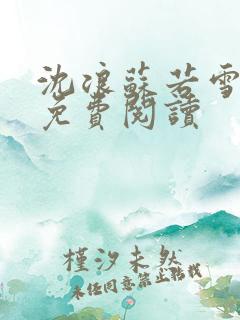 沈浪蘇若雪
免費閱讀
槿汐未然
未經同意禁止轉載